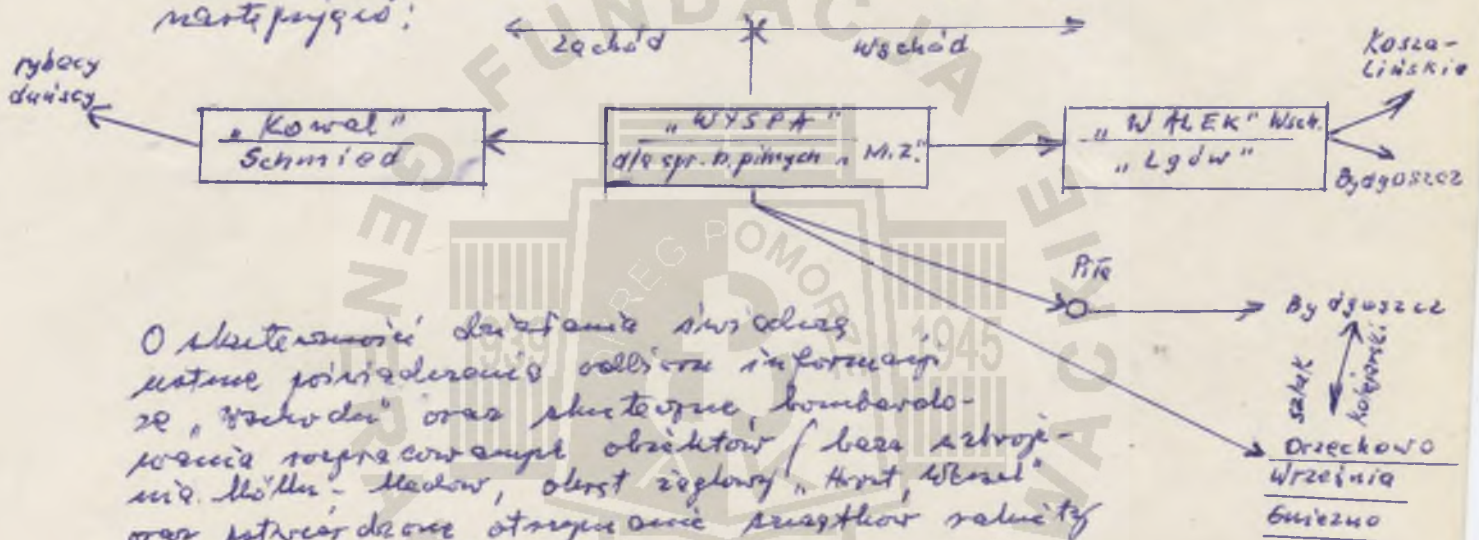 następująco:
Zachód Wschód
rybacy
duńscy
"Kowal"
Schmied
"WYSPA"
dla spr. b. pilnych "M.Z."
"WALEK" Wsch.
"Lgów"
Kosza-
lińskie
Bydgoszcz
Piła
Bydgoszcz
szlak
kolejarski
Orzechowo
Września
Gniezno
O skuteczności działania świadczą
ustne poświadczenia odbioru informacji
ze "wschodu" oraz skuteczne bombardo-
wania rozpracowanych obiektów / baza uzbroje-
nia, okręt żaglowy "Horst Wessel"
oraz potwierdzone otrzymanie rakiety
FUNDACJA GENERAŁ
OKRĘG POMORZE
1939 1945
AK